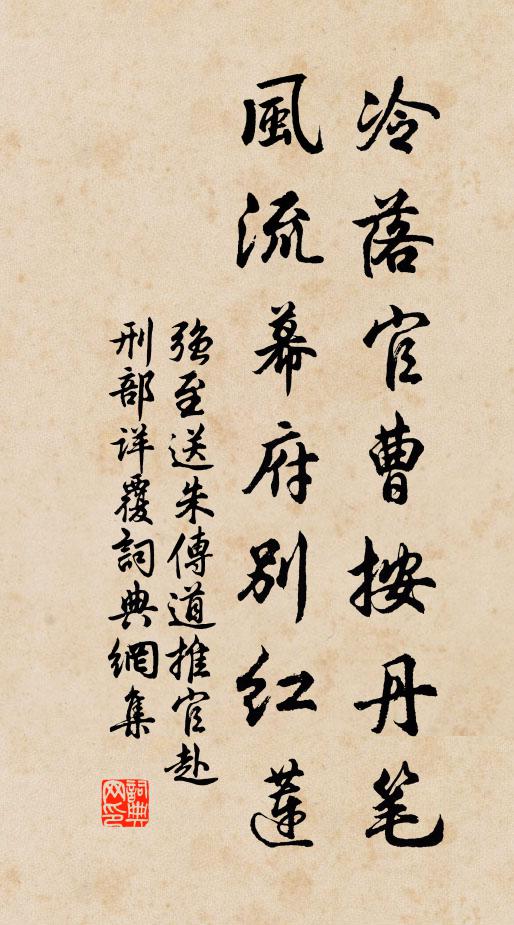 冷落官曹按丹笔
風流幕府別红蓮
強至送朱傅道推官赴
刑部详覆詞典網集
詞典
网印